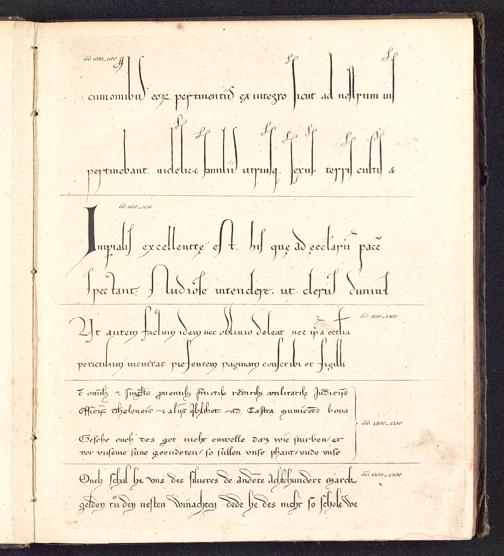 ao 1050–1100
cum omnibus eorum pertinentiis ex integro sicut ad nostrum ius
pertinebant. videlicet familiis utriusque sexus. terris cultis &
ao 1100–1150
Imperialis excellentię est. his que ad ecclesiarum pacem
spectant. studiose intendere. ut. cleris dum
Ut autem factum idem nec oblivio deleat nec ipsa ecclesia
ao 1150–1200
periculum incurrat presentem paginam conscribi et sigilli
omnibus & singulis proventibus fructibus redditibus utilitatibus Judiciis
officiis theloneis & aliis quibuslibet ad Castra munitiones bona
ao 1200–1250
Gesche ouch des got nicht enwelle daz wie sturben / er
vor unseme sune / so sullen unse phant / unde unse
Ouch schal he uns des silueres de andere achtehundert marck
ao 1250–1300
gelden tu den nesten winachten dede he des nicht so schole we